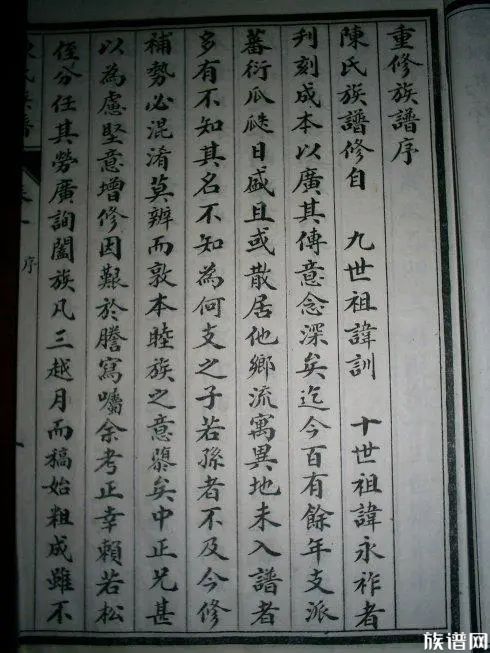 重修族譜序
陳氏族譜修自　九世祖諱訓　十世祖諱永祚者
刋刻成本以廣其傳意念深矣迄今百有餘年支派
蕃衍瓜瓞日盛且或散居他鄉流寓異地未入譜者
多有不知其名不知為何支之子若孫者不及今修
補勢必混淆莫辨而敦本睦族之意隳矣中正兄甚
以為慮堅意增修因艱於謄寫囑余考正幸賴若松
侄分任其勞廣詢闔族凡三越月而稿始粗成雖不
氏族譜
序
族谱网